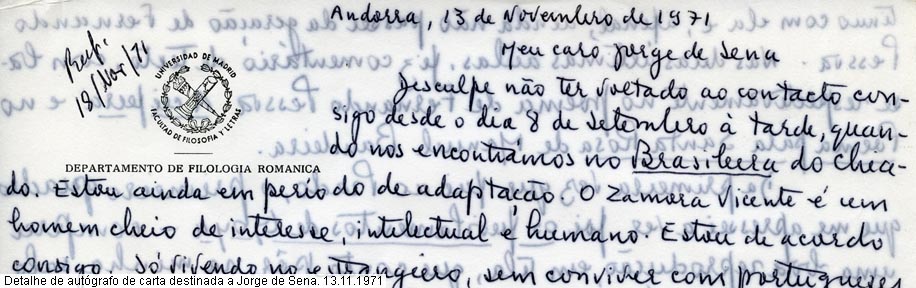 Andorra, 13 de Novembro de 1971
Recebi
18/Nov/71
UNIVERSIDAD DE MADRID
FACULTAD DE FILOSOFIA Y LETRAS
DEPARTAMENTO DE FILOLOGIA ROMANICA
Meu caro Jorge de Sena
Desculpe não ter voltado ao contacto con-
sigo desde o dia 8 de Setembro à tarde, quan-
do nos encontrámos no Brasileira do Chia-
do. Estou ainda em período de adaptação. O Zamora Vicente é um
homem cheio de interesse, intelectual e humano. Estou de acordo
consigo. Só vivendo no estrangeiro, sem conviver com portugueses
Detalhe de autógrafo de carta destinada a Jorge de Sena. 13.11.1971